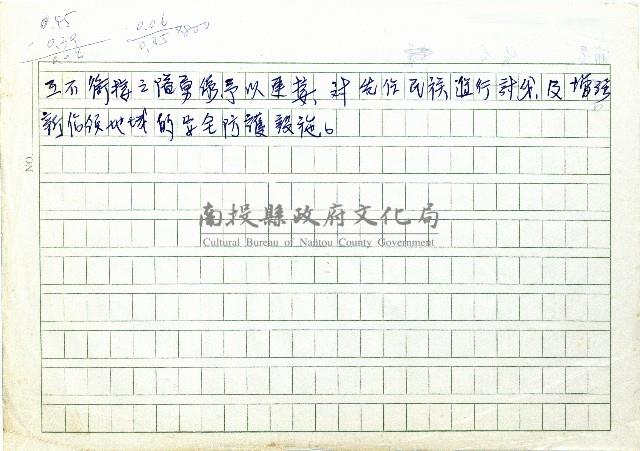 0.45
0.39
0.06
0.06
0.45
互不銜接之隘勇線予以連接、對先住民族進行討伐、及增強
新佔領地域的安全防護設施。
NO.
南投縣政府文化局
Cultural Bureau of Nantou County Government